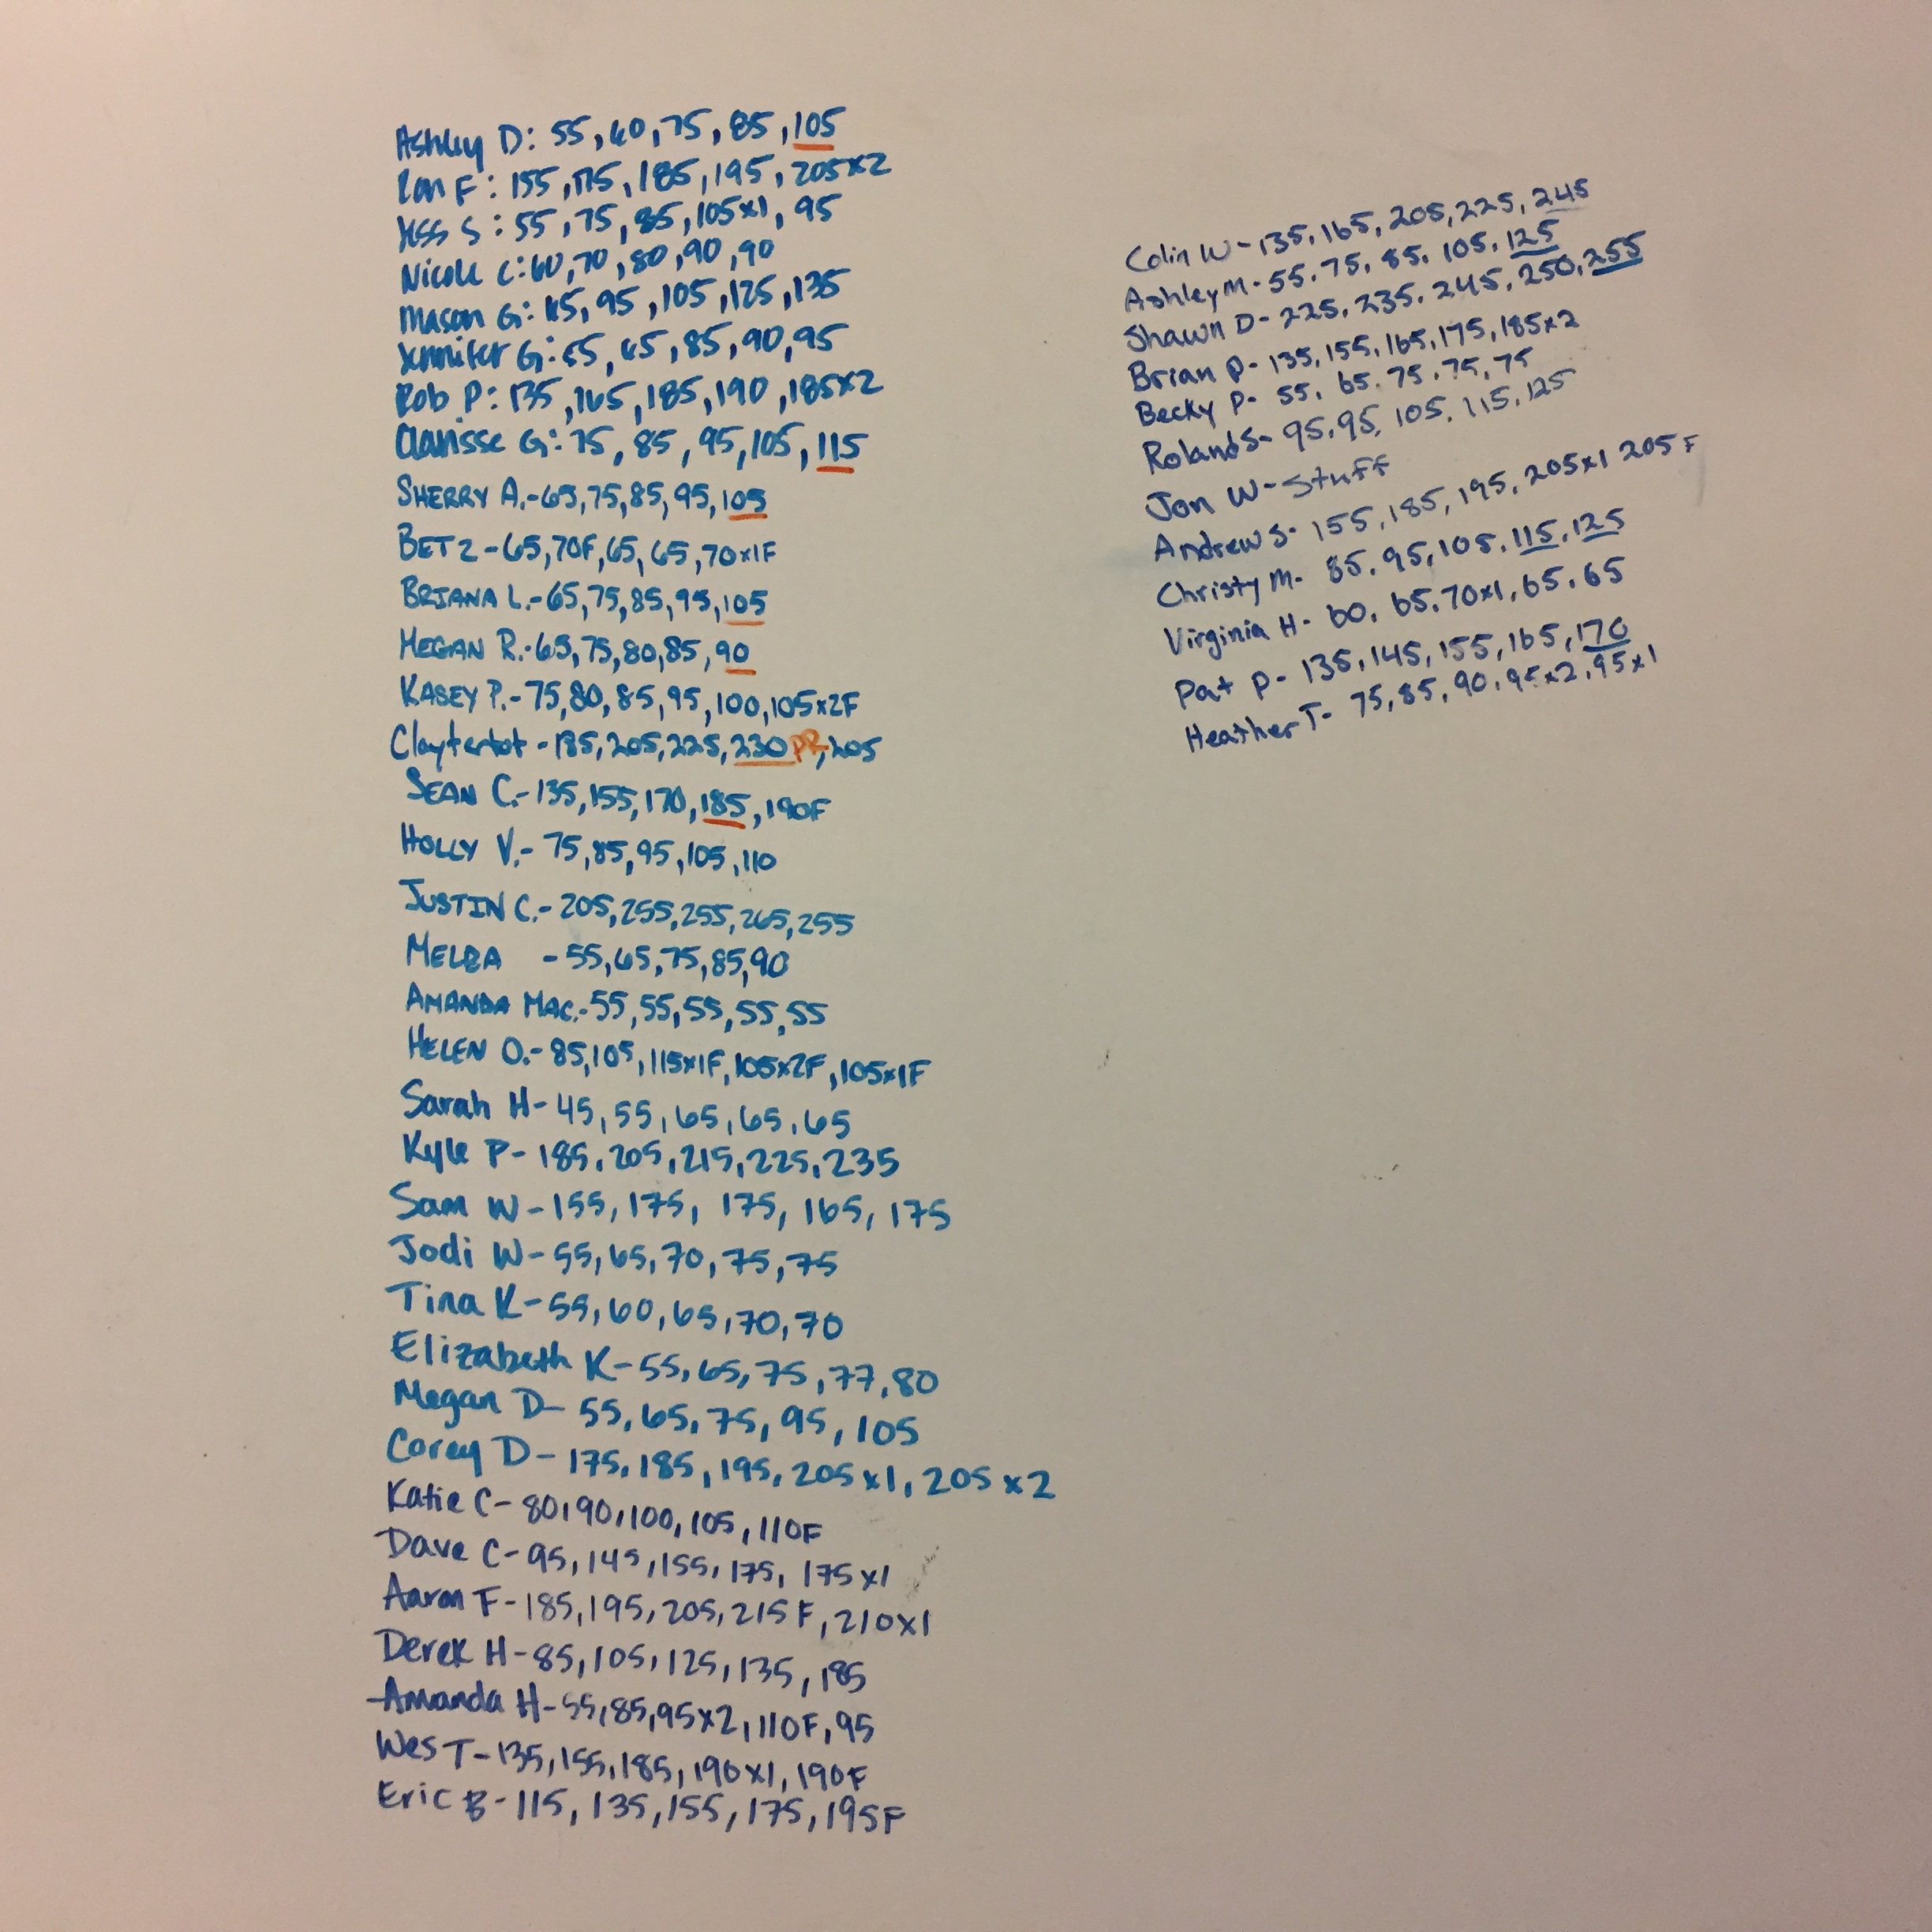 Ashley D: 55, 60, 75, 85, 105
Ron F: 155, 175, 185, 195, 205x2
Jess S: 55, 75, 85, 105x1, 95
Nicole C: 60, 70, 80, 90, 90
Mason G: 65, 95, 105, 125, 135
Jennifer G: 55, 65, 85, 90, 95
Rob P: 135, 165, 185, 190, 185x2
Clarisse G: 75, 85, 95, 105, 115
SHERRY A.-65,75,85,95,105
BETZ-65,70F,65,65,70x1F
BRIANA L.-65,75,85,95,105
MEGAN R.-65,75,80,85,90
KASEY P.-75,80,85,95,100,105x2F
Claytertot-185,205,225,230 PR,205
SEAN C.-135,155,170,185,190F
HOLLY V.-75,85,95,105,110
JUSTIN C.-205,255,255,265,255
MELBA -55,65,75,85,90
AMANDA MAC.-55,55,55,55,55
HELEN O.-85,105,115x1F,105x2F,105x1F
Sarah H-45,55,65,65,65
Kyle P-185,205,215,225,235
Sam W-155, 175, 175, 165, 175
Jodi W-55,65,70,75,75
Tina K-55,60,65,70,70
Elizabeth K-55,65,75,77,80
Megan D-55,65,75,95,105
Corey D-175,185,195,205x1,205x2
Katie C-80,90,100,105,110F
Dave C-95,145,155,175,175x1
Aaron F-185,195,205,215F,210x1
Derek H-85,105,125,135,185
Amanda H-55,85,95x2,110F,95
Wes T-135,155,185,190x1,190F
Eric B-115,135,155,175,195F
Colin W-135,165,205,225,245
Ashley M-55,75,85,105,125
Shawn D-225,235,245,250,255
Brian P-135,155,165,175,185x2
Becky P-55,65,75,75,75
Roland S-95,95,105,115,125
Jon W-Stuff
Andrew S-155,185,195,205x1 205F
Christy M-85,95,105,115,125
Virginia H-60,65,70x1,65,65
Pat P-135,145,155,165,170
Heather T-75,85,90,95x2,95x1